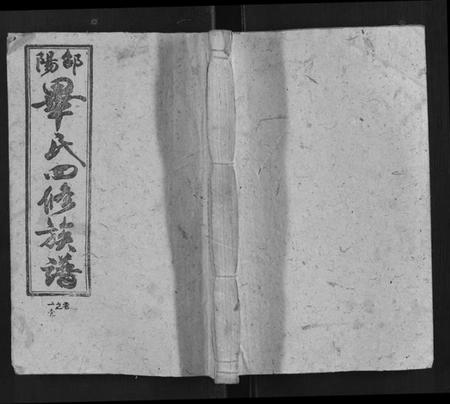 邵陽
畢氏四修族譜
卷之